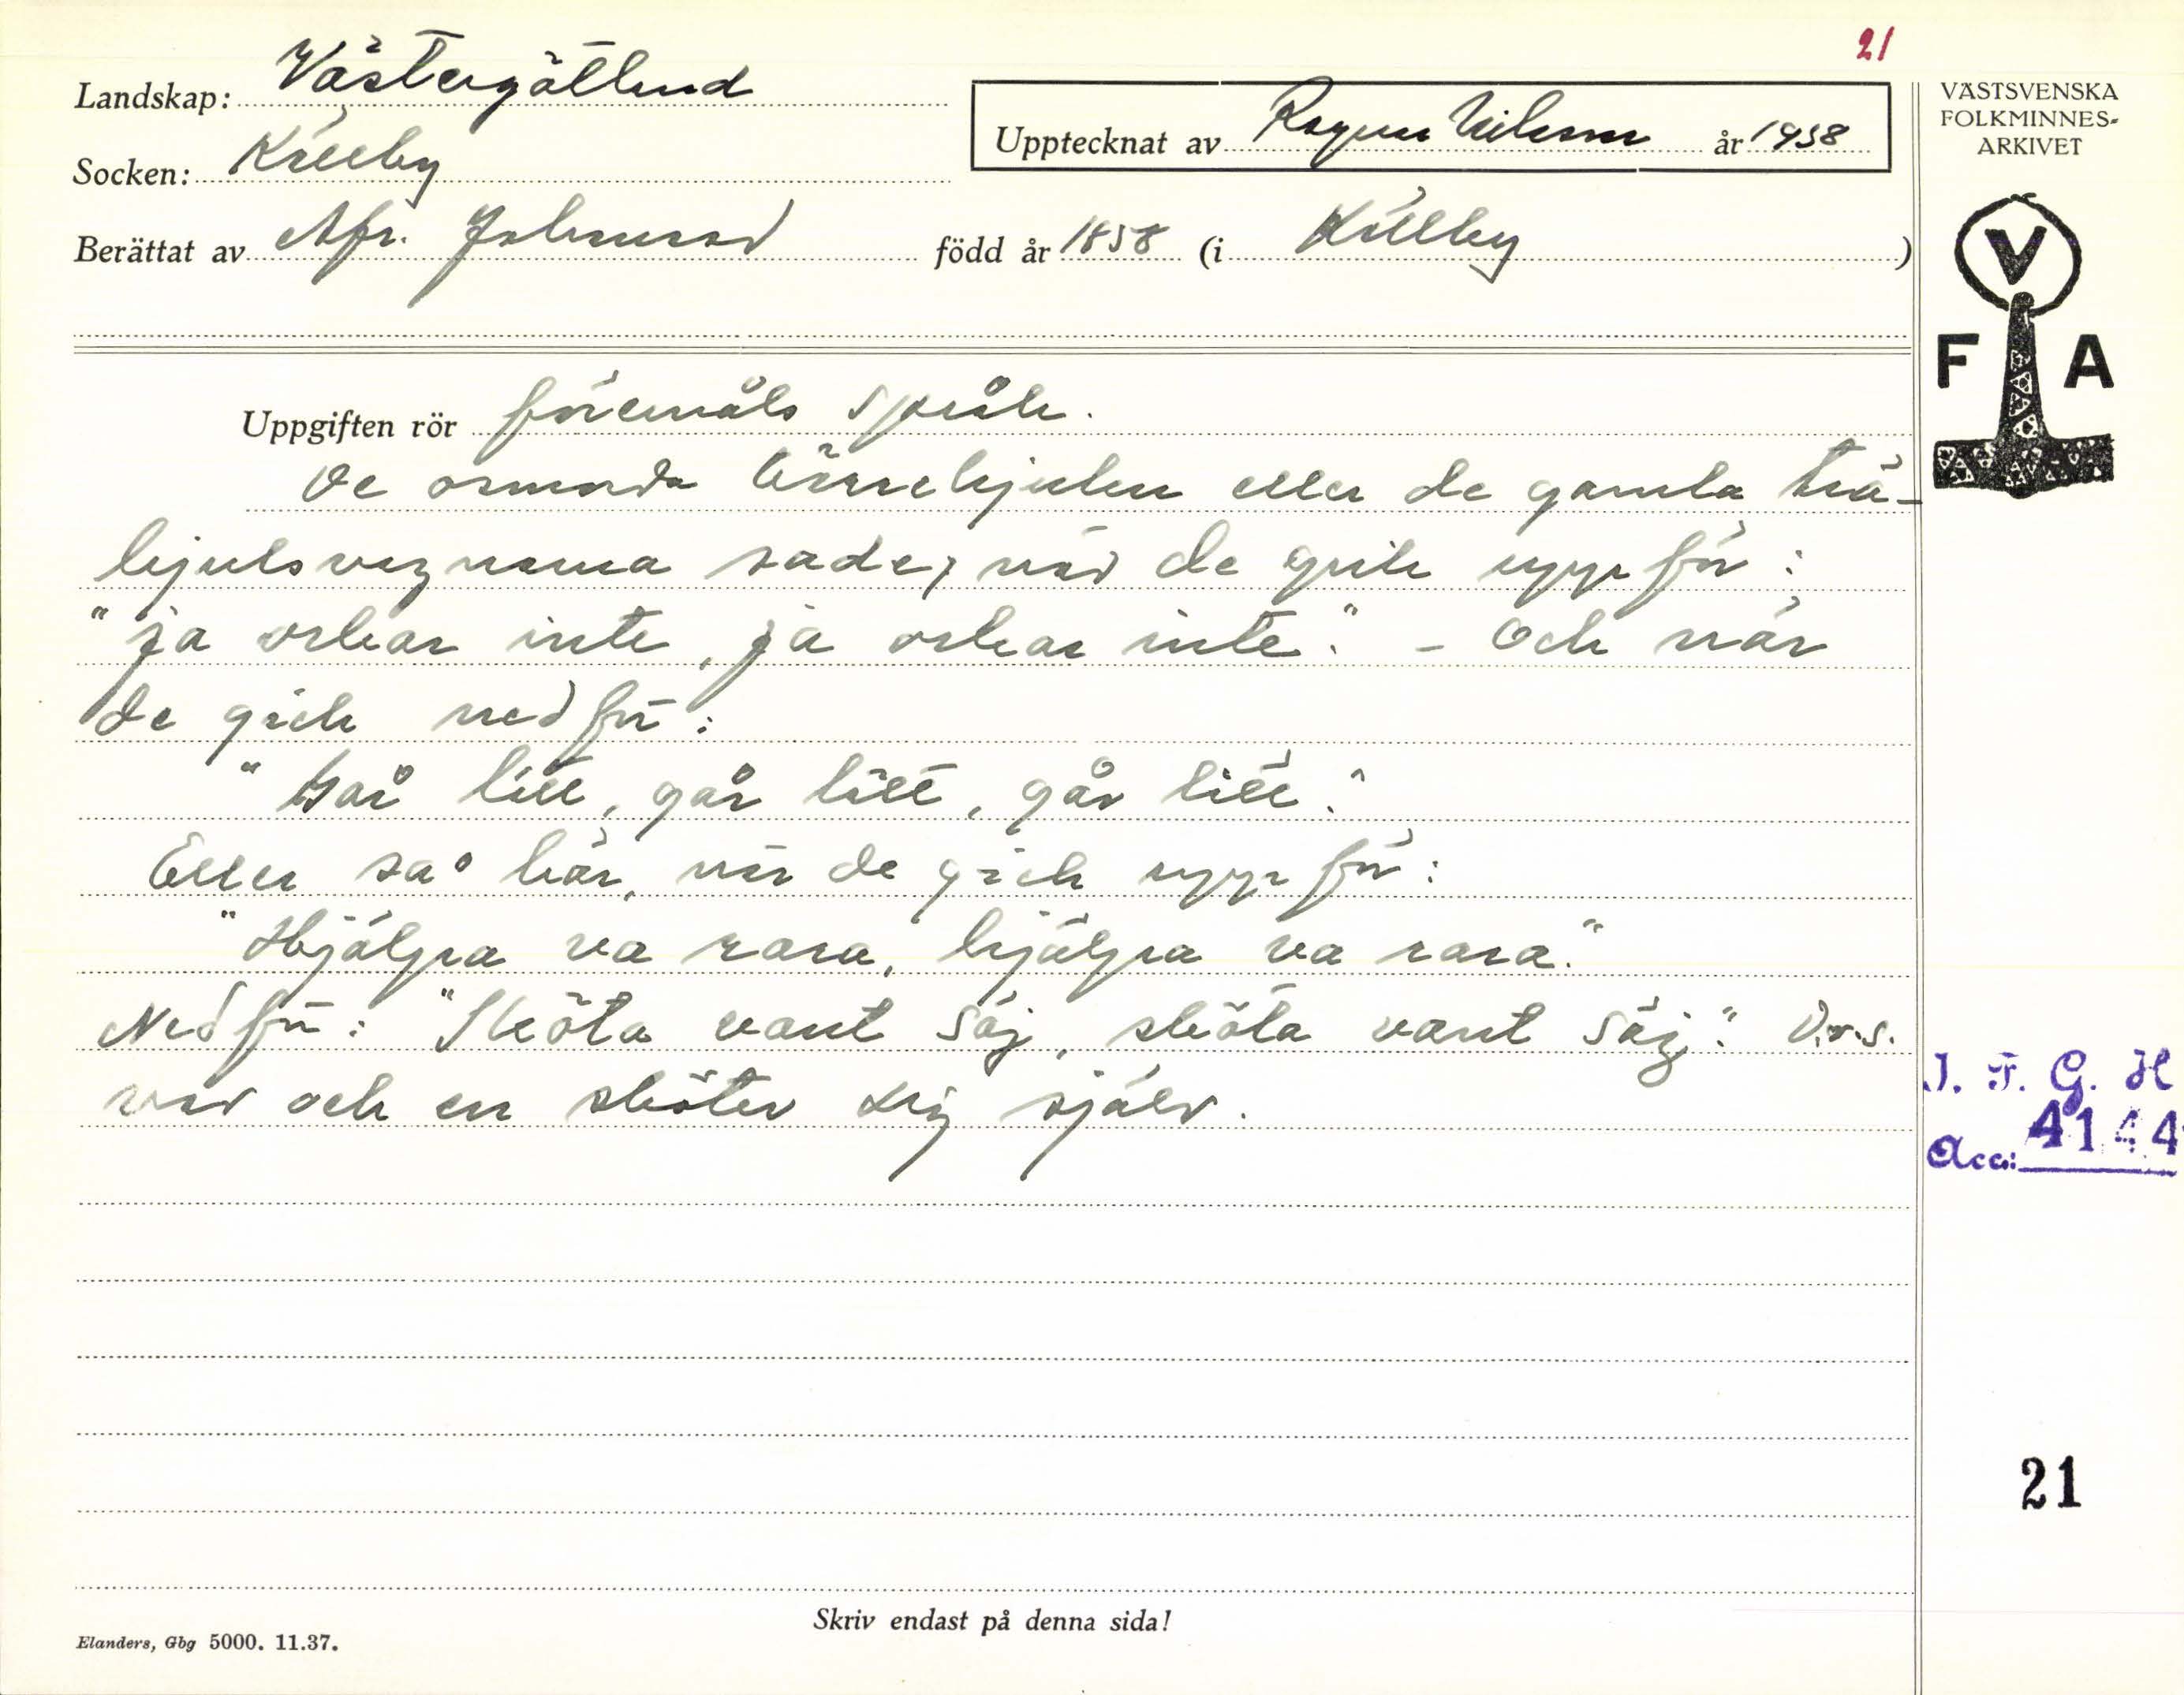 21
Landskap: Västergötland
Socken: Källby
Upptecknat av Ragnar Nilsson år 1938
VÄSTSVENSKA
FOLKMINNES-
ARKIVET
Berättat av Afr. Johansson född år 1858 (i Källby)
V
F A
Uppgiften rör föremåls språk.
De osmorda kärrehjulen eller de gamla trä-
hjulsvagnarna sade, när de gick uppför:
"ja orkar inte, ja orkar inte." - Och när
de gick nedför:
"Går lätt, går lätt, går lätt."
Eller sa° här, när de gick uppför:
"Hjälpa va rara, hjälpa va rara."
Nedför: "Sköta vant säj, sköta vant säj." D.v.s.
var och en sköter sig själv.
I. F. G. H
Acc: 4144
21
Skriv endast på denna sida!
Elanders, Gbg 5000. 11.37.